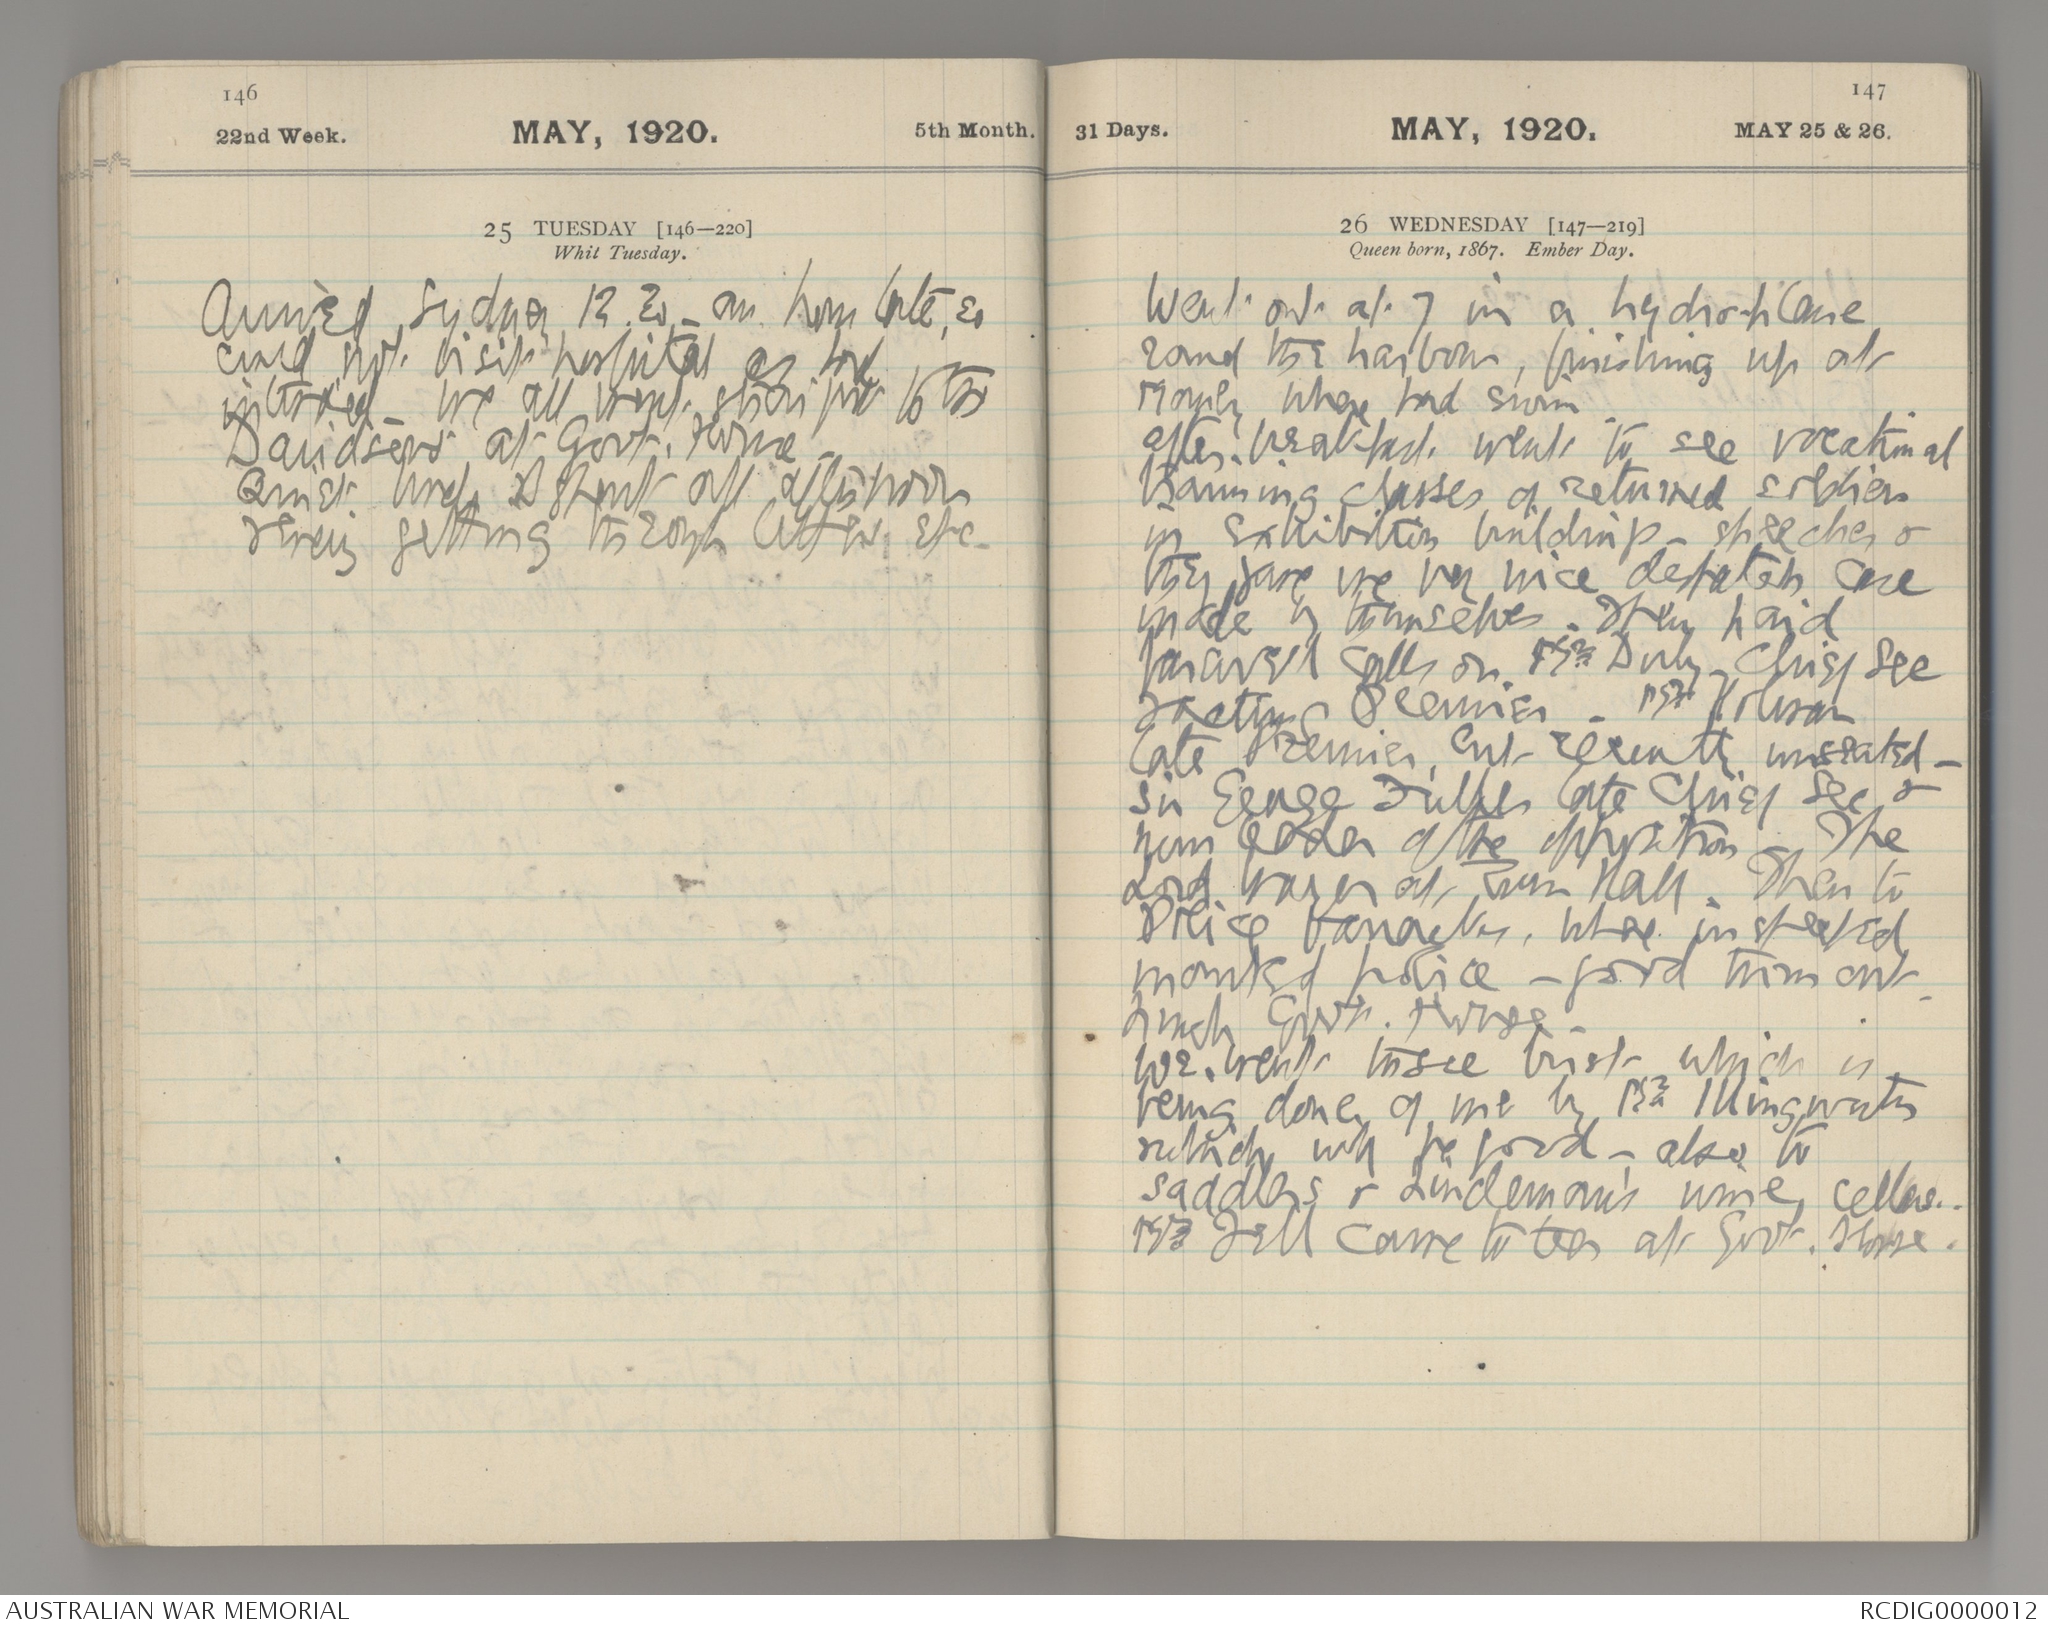 146
22nd Week.
MAY, 1920.
5th Month.
25 TUESDAY [146—220]
Whit Tuesday.
Arrived Sydney 12.20 – an hour late, so
could not visit hospital as had
intended – We all went straight to the
Davidsons at Govt. House –
Quiet lunch & spent all afternoon
getting through letters etc –
147
31 Days.
MAY, 1920.
MAY 25 & 26.
26 WEDNESDAY [147—219]
Queen born, 1867. Ember Day.
Went out at 7 in a hydroplane
round the harbour, finishing up at
Manly where had swim
After breakfast went to see vocational
training classes of returned soldiers
in exhibition buildings – speeches &
they gave me very nice despatch case
made by themselves. Then paid
farewell calls on Mr Chief Sec
& acting Premier – Mr Holman
late Premier, but recently unseated –
Sir George Fuller late Chief Sec &
now leader of the opposition. The
Lord Mayor at Town Hall. Then to
Police barracks, where inspected
mounted police – good turn out –
Lunch Govt. House –
We went to see bust which is
being done of me by Mr Illingworth
which will be good – also to
saddlers & Lindeman's wine cellars..
Mr Fell came to tea at Govt. House.
AUSTRALIAN WAR MEMORIAL
RCDIG0000012